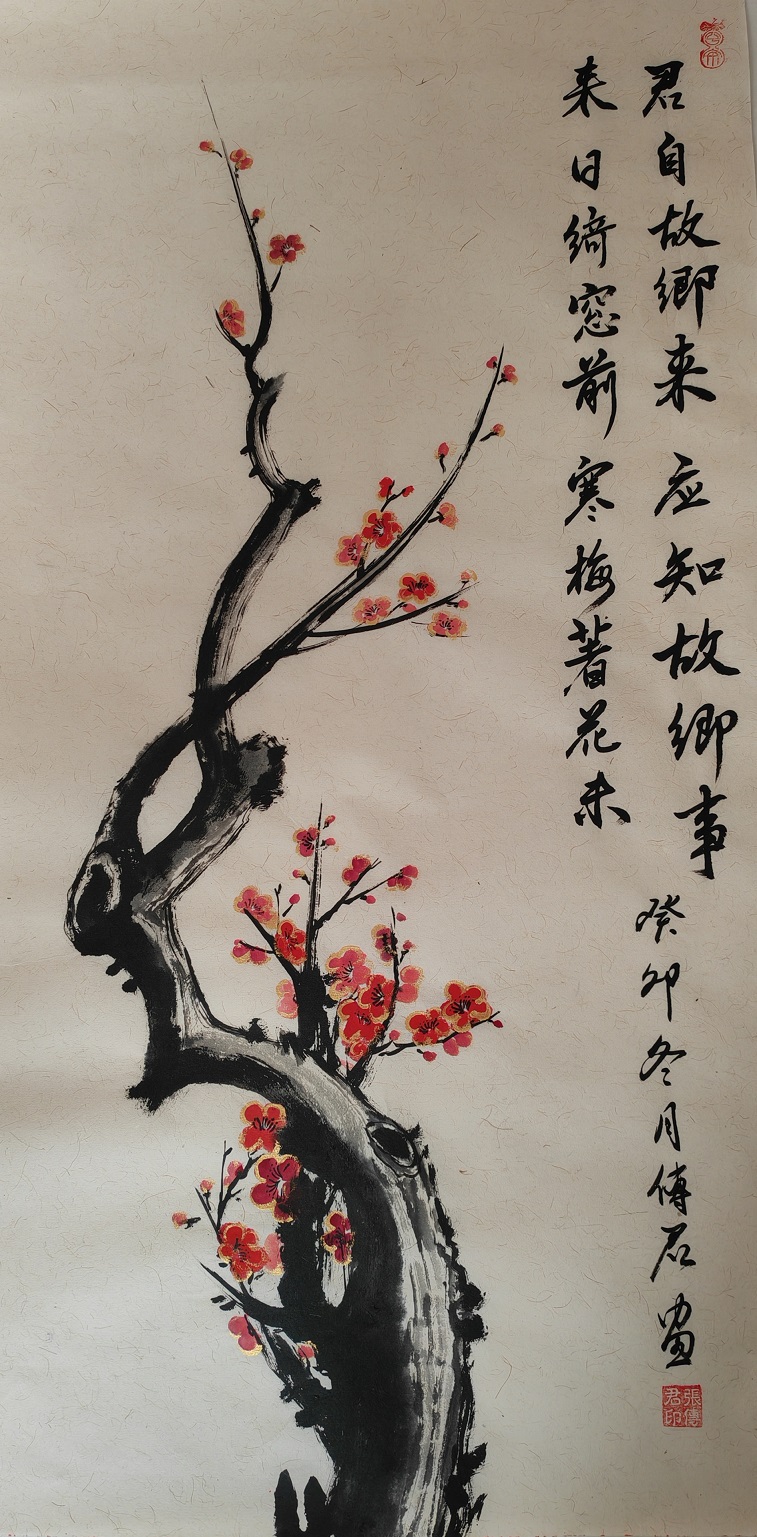 君自故鄉来 应知故鄉事
来日綺窓前 寒梅著花未
癸卯冬月傅君畫
張傅君印